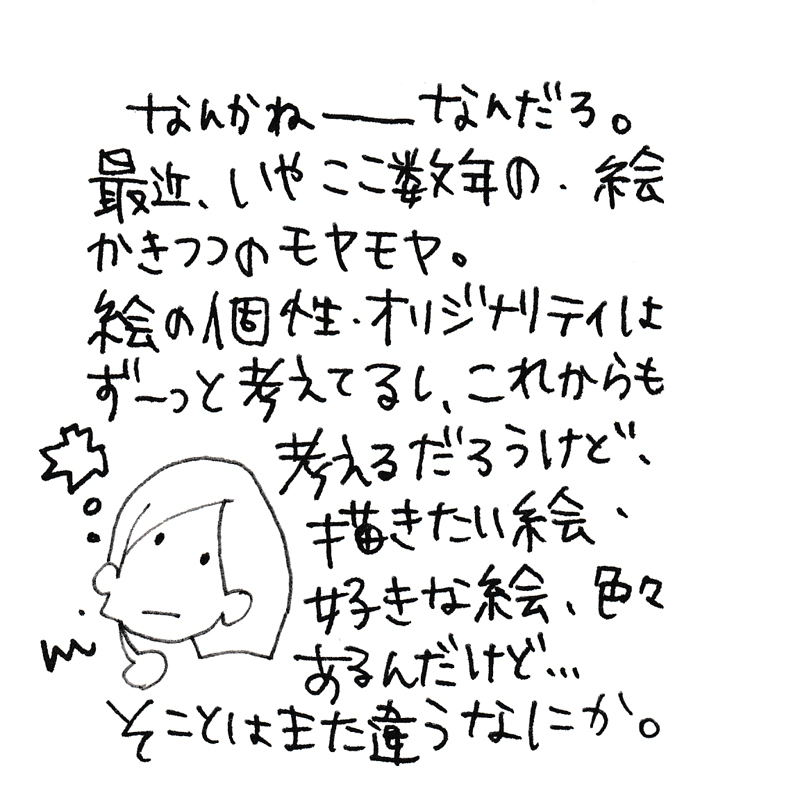 なんかね――なんだろ。
最近、いやここ数年の、絵
かきつつのモヤモヤ。
絵の個性・オリジナリティは
ず〜っと考えてるし、これからも
考えるだろうけど、
描きたい絵、
好きな絵、色々
あるんだけど…
そことはまた違うなにか。